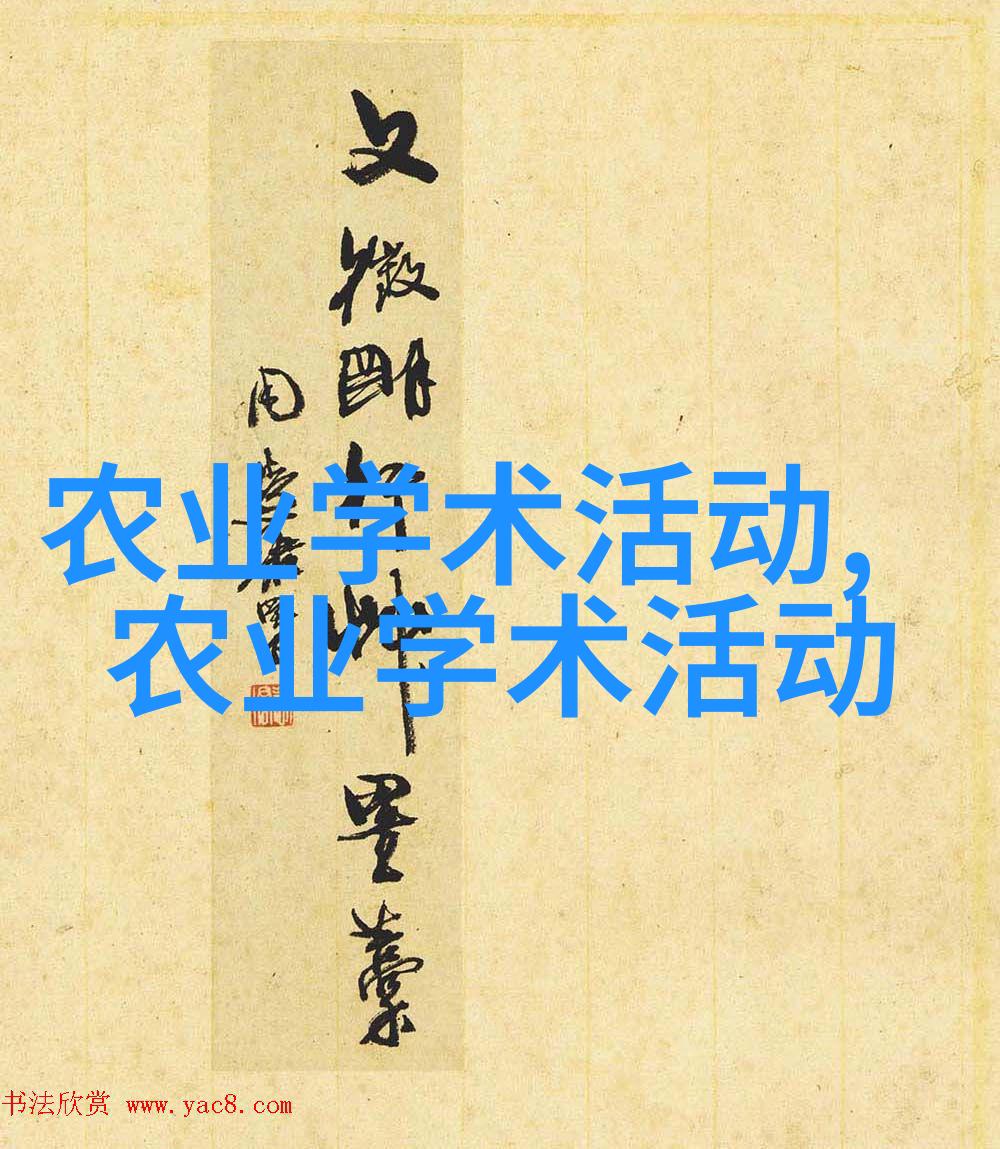 文徵明行艸墨藁
周
农业学术活动,
农业学术活动
书法欣赏 www.yac8.com